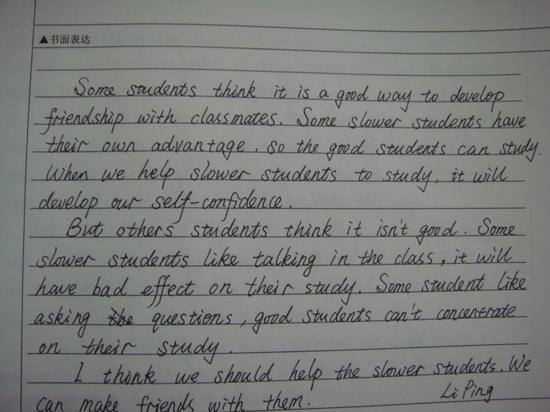 ▲书面表达
Some students think it is a good way to develop
friendship with classmates. Some slower students have
their own advantage. so the good students can study.
When we help slower students to study, it will
develop our self-confidence.
But others students think it isn't good. Some
slower students like talking in the class, it will
have bad effect on their study. Some student like
asking the questions, good students can't concentrate
on their study.
I think we should help the slower students. We
can make friends with them. Li Ping